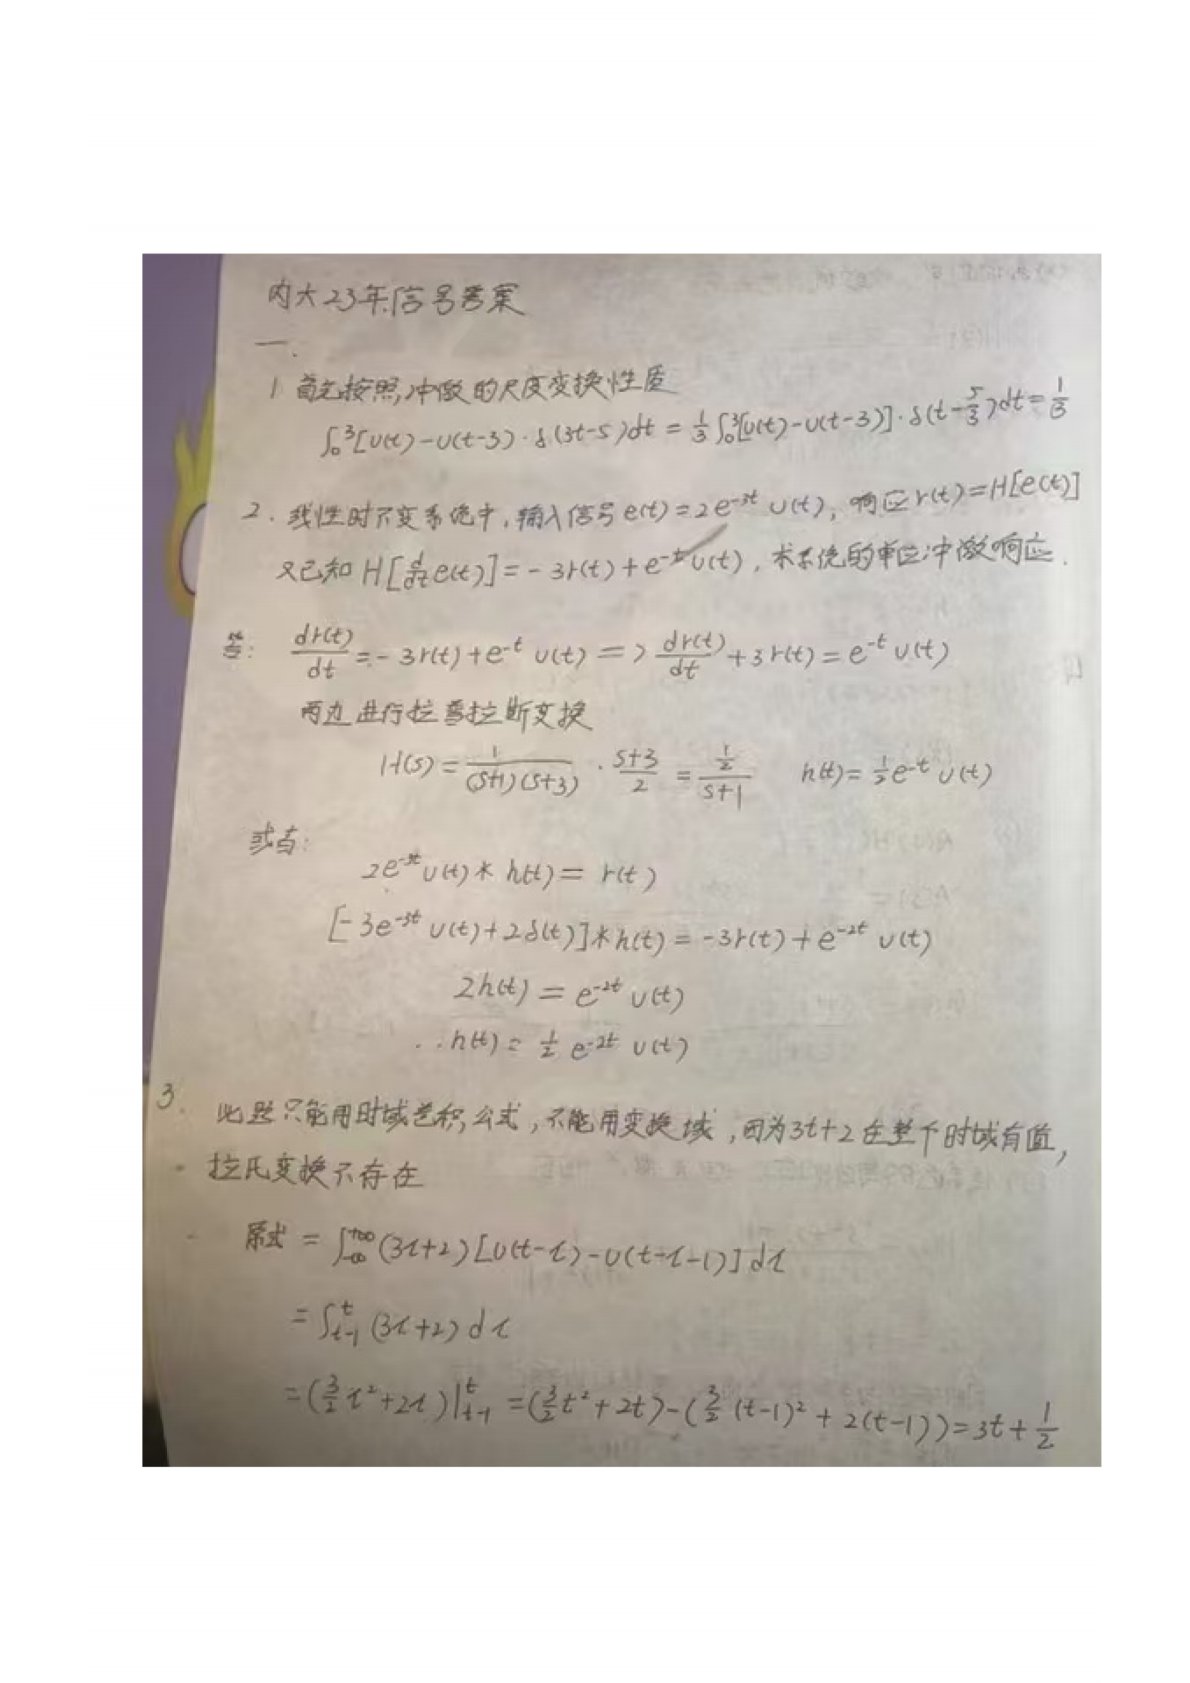 内大23年信号答案
一.
1 首先按照,冲激的尺度变换性质
∫₀³[u(t)-u(t-3)·δ(3t-5)dt = 1/3 ∫₀³[u(t)-u(t-3)]·δ(t-5/3)dt = 1/3
2. 线性时不变系统中,输入信号e(t)=2e^{-3t} u(t), 响应r(t)=H[e(t)]
又已知 H[d/dt e(t)] = -3r(t)+e^{-t}u(t), 求系统的单位冲激响应.
答: dr(t)/dt = -3r(t)+e^{-t} u(t) => dr(t)/dt +3r(t) = e^{-t} u(t)
两边进行拉普拉斯变换
H(s) = 1/((s+1)(s+3)) · (s+3)/2 = (1/2)/(s+1) h(t) = 1/2 e^{-t} u(t)
或者:
2e^{-3t} u(t) * h(t) = r(t)
[-3e^{-3t} u(t)+2δ(t)]*h(t) = -3r(t)+e^{-2t} u(t)
2h(t) = e^{-2t} u(t)
∴h(t) = 1/2 e^{-2t} u(t)
3. 此题只能用时域卷积公式,不能用变换域,因为3t+2在整个时域有值,
拉氏变换不存在
原式 = ∫_{-∞}^{+∞} (3τ+2)[u(t-τ)-u(t-τ-1)]dτ
= ∫_{t-1}^{t} (3τ+2)dτ
= (3/2 τ²+2τ)|_{t-1}^{t} = (3/2 t²+2t)-(3/2 (t-1)²+2(t-1)) = 3t+1/2